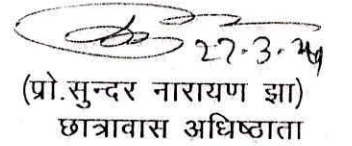 27.3.24
(प्रो.सुन्दर नारायण झा)
छात्रावास अधिष्ठाता